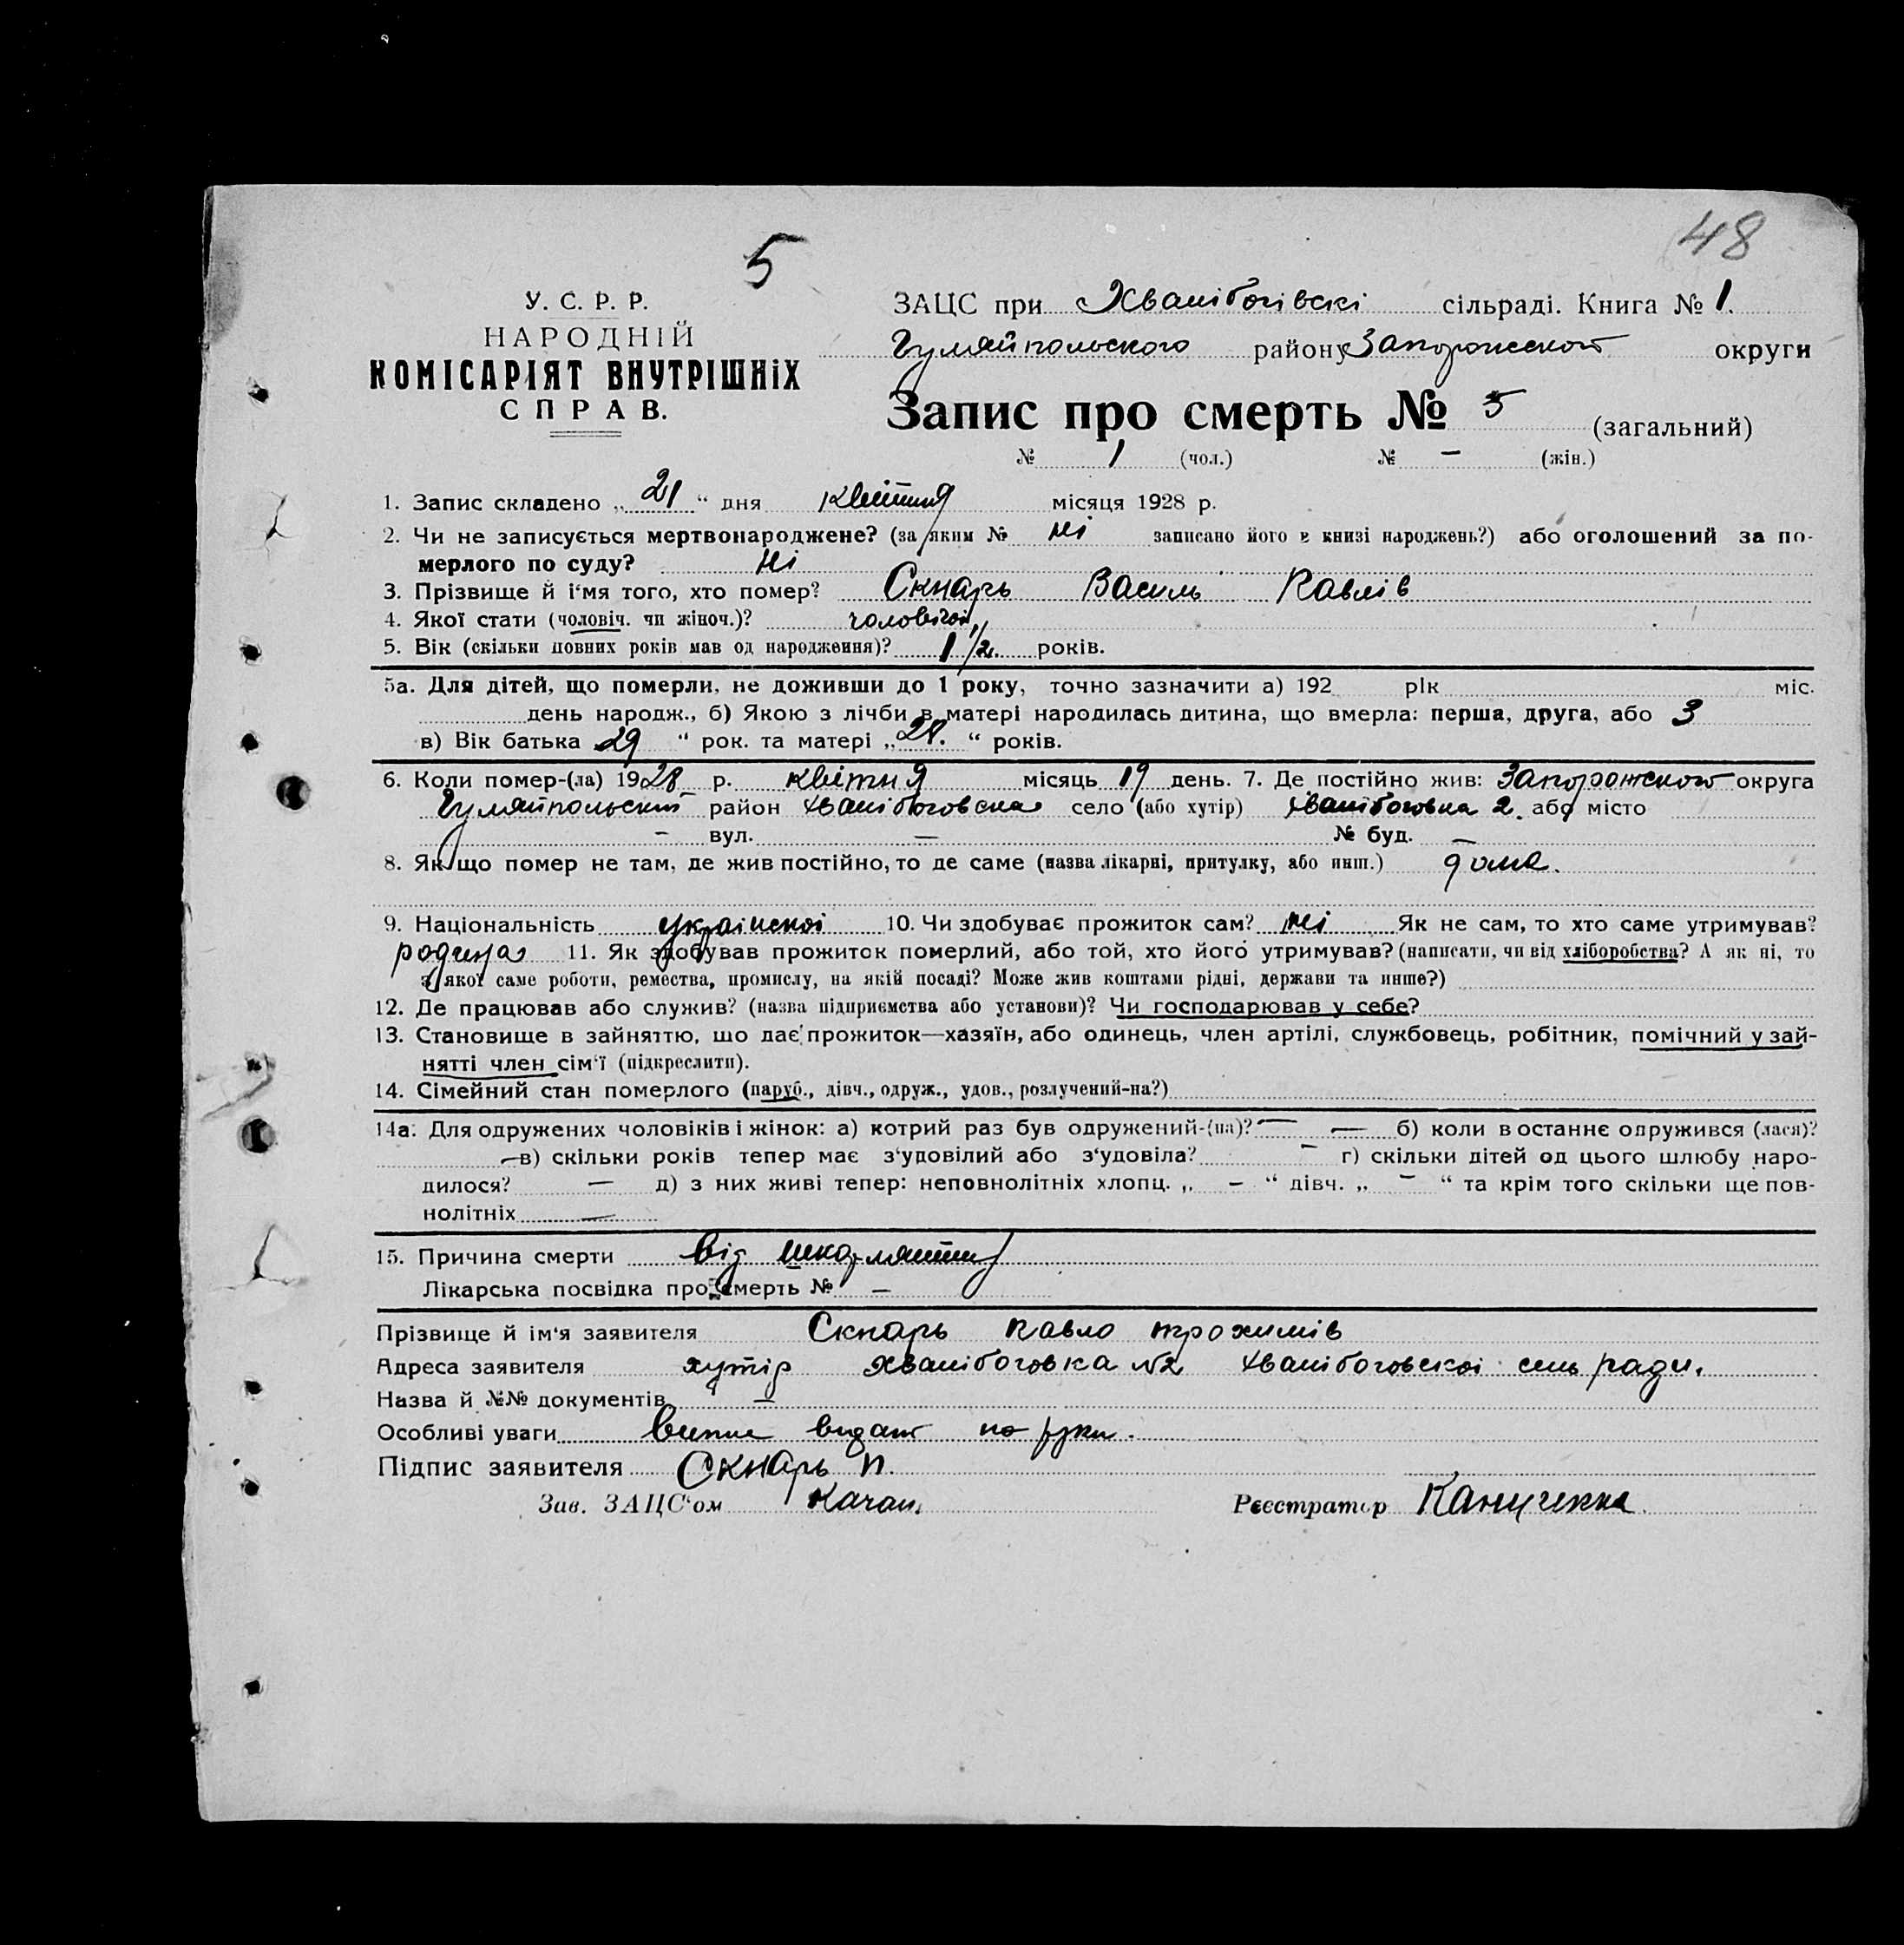 5
48
У. С. Р. Р.
НАРОДНІЙ
КОМІСАРІЯТ ВНУТРІШНІХ
СПРАВ.
ЗАЦС при Хванібогівскі сільраді. Книга № 1.
Гуляйпольского району Запорожскоі округи
Запис про смерть № 5 (загальний)
№ 1 (чол.) № — (жін.)
1. Запис складено „21“ дня квітня місяця 1928 р.
2. Чи не записується мертвонароджене? (за яким № ні записано його в книзі народжень?) або оголошений за по-
мерлого по суду? ні
3. Прізвище й і‘мя того, хто помер? Скнарь Василь Павлів
4. Якої стати (чоловіч. чи жіноч.)? чоловічоі
5. Вік (скільки повних років мав од народження)? 1 1/2 років.
5а. Для дітей, що померли, не доживши до 1 року, точно зазначити а) 192 рік міс.
день народж., б) Якою з лічби в матері народилась дитина, що вмерла: перша, друга, або 3
в) Вік батька 29 “ рок. та матері „28.“ років.
6. Коли помер-(ла) 1928 р. квітня місяць 19 день. 7. Де постійно жив: Запорожскоі округа
Гуляйпольский район Хванібоговска село (або хутір) Хванібоговка 2. або місто
— вул. — № буд. —
8. Якщо помер не там, де жив постійно, то де саме (назва лікарні, притулку, або инш.) дома.
9. Національність украінскоі 10. Чи здобуває прожиток сам? ні Як не сам, то хто саме утримував?
родина 11. Як здобував прожиток померлий, або той, хто його утримував? (написати, чи від хліборобства? А як ні, то
з якої саме роботи, ремества, промислу, на якій посаді? Може жив коштами рідні, держави та инше?)
12. Де працював або служив? (назва підприємства або установи)? Чи господарював у себе?
13. Становище в зайняттю, що дає прожиток—хазяїн, або одинець, член артілі, службовець, робітник, помічний у зай-
нятті член сім‘ї (підкреслити).
14. Сімейний стан померлого (паруб., дівч., одруж., удов., розлучений-на?)
14а. Для одружених чоловіків і жінок: а) котрий раз був одружений-(на)? — — б) коли в останнє одружився (лася)?
— в) скільки років тепер має з‘удовілий або з‘удовіла? — г) скільки дітей од цього шлюбу наро-
дилося? — д) з них живі тепер: неповнолітніх хлопц. „ — “ дівч. „ — “ та крім того скільки ще пов-
нолітніх —
15. Причина смерти від шкарлятини
Лікарська посвідка про смерть № —
Прізвище й ім‘я заявителя Скнарь Павло трохимів
Адреса заявителя хутір Хванібоговка №2 Хванібоговскоі сель ради.
Назва й №№ документів —
Особливі уваги видан на руки.
Підпис заявителя Скнарь П.
Зав. ЗАЦС‘ом Качан. Реєстратор